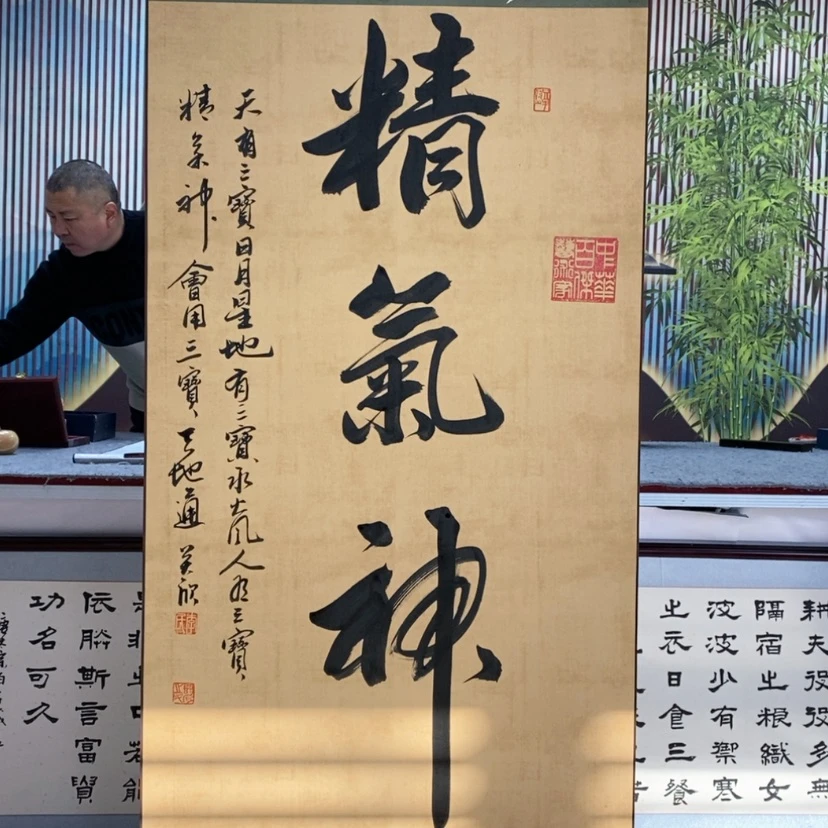 精氣神
天有三寶日月星地有三寶水火風人有三寶
精氣神會用三寶天地通
中華百傑藝術家
耕夫役役多無
隔宿之粮織女
波波少有禦寒
之衣日食三餐
依勝斯言富貴
功名可久